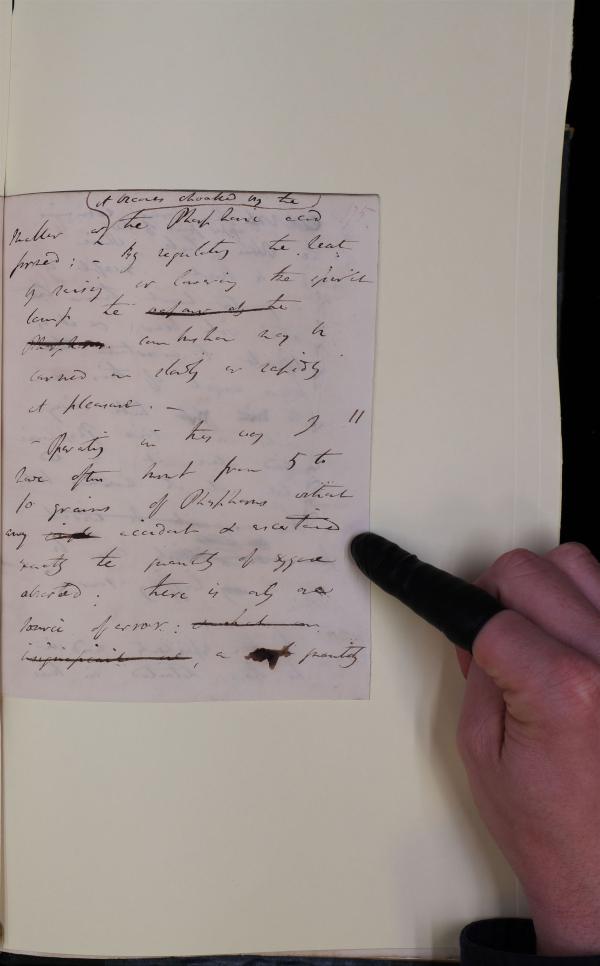 it becomes choaked by the
matter of the Phosphoric acid
formed: - By regulating the heat
by raising or lowering the spirit
lamp the vapour of the
Phosphorus. combustion may be
carried on slowly or rapidly
at pleasure. -
- Operating in this way I
have often burnt from 5 to
10 grains of Phosphorus without
any single accident & ascertained
exactly the quantity of oxygene
absorbed: there is only one
source of error: which is an
insignificant one, a quantity